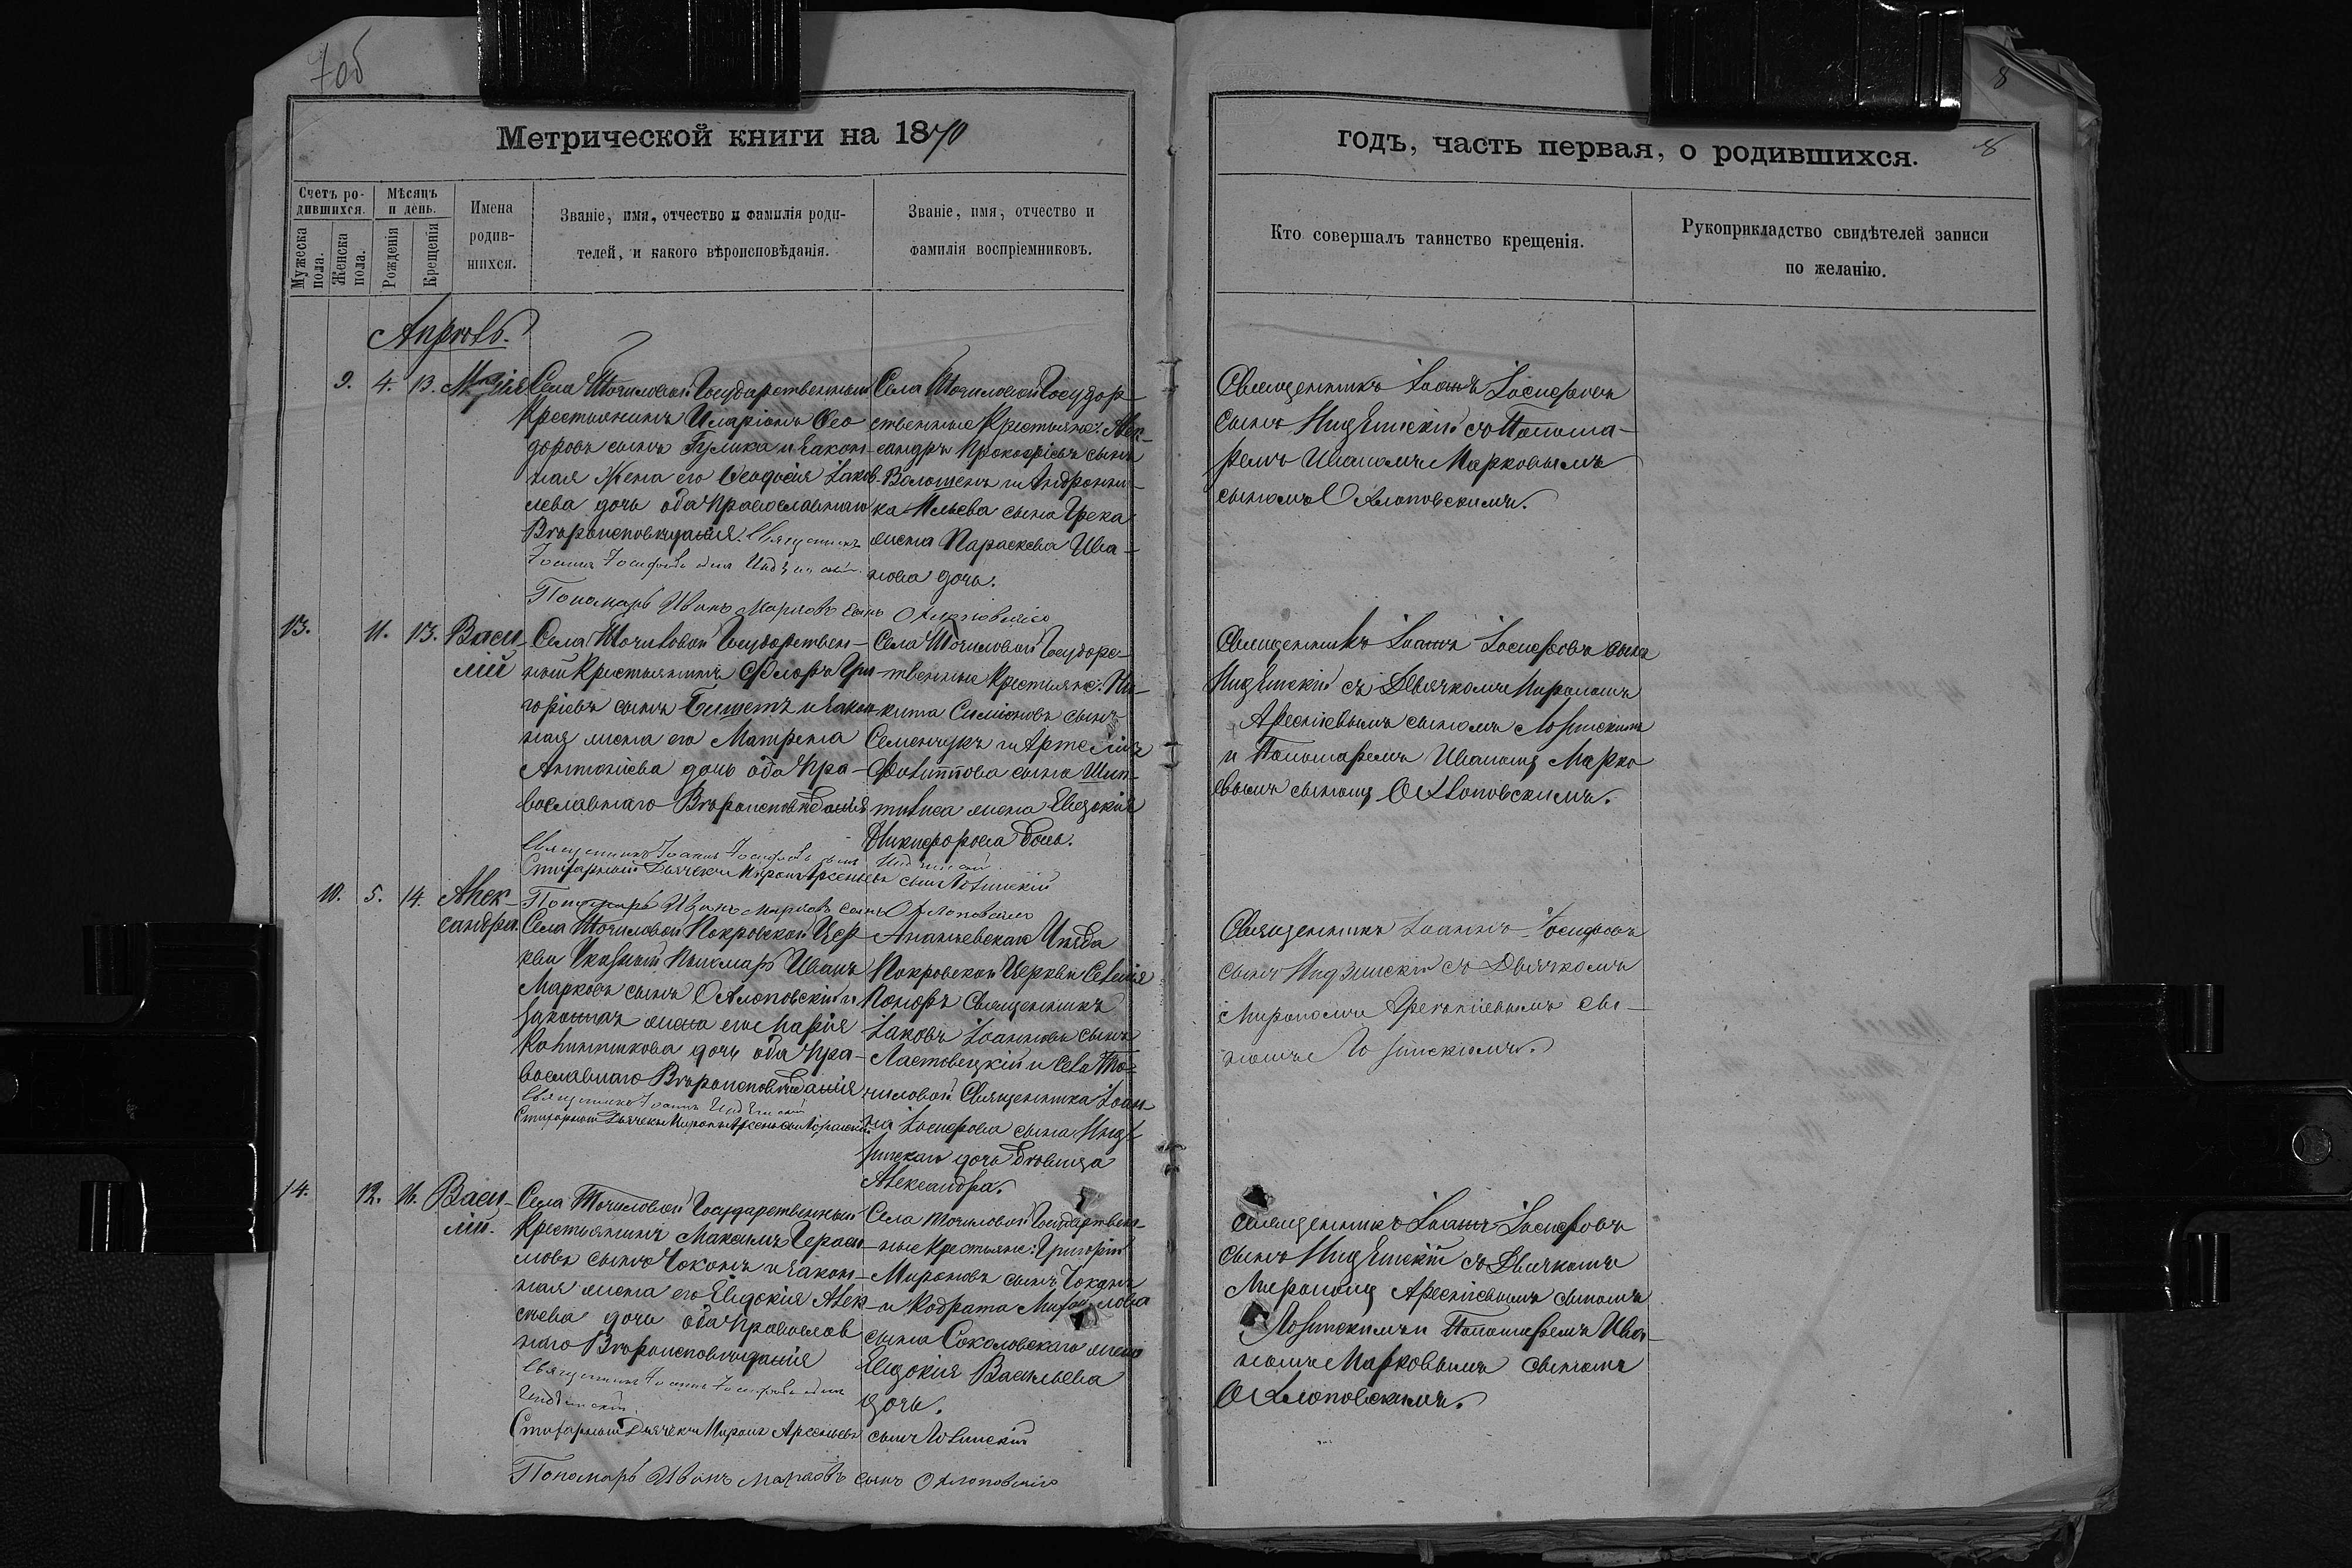 7об
8
8
Метрической книги на 1870
годъ, часть первая, о родившихся.
Счетъ ро-
дившихся.
Мѣсяцъ
и день.
Мужеска
пола.
Женска
пола.
Рожденія
Крещенія
Имена
родив-
шихся.
Званіе, имя, отчество и фамилія роди-
телей, и какого вѣроисповѣданія.
Званіе, имя, отчество и
фамилія воспріемниковъ.
Кто совершалъ таинство крещенія.
Рукоприкладство свидѣтелей записи
по желанію.
Апрѣль.
9. 4. 13. Марія
Села Точиловой Государственный
Крестьянинъ Иларіонъ Ѳео
доровъ сынъ Гулика и закон-
ная жена его Ѳеодосія Іаков-
лева дочь оба Православнаго
Вѣроисповѣданія. Священникъ
Іоаннъ Іосифовъ сынъ
Пономарь Иванъ Марковъ сынъ Охлоповскій
Села Точиловой Государ-
ственные Крестьяне: Алек-
сандръ Прокофіевъ сынъ
Волошенъ и Андрони-
ка Ильева сына Грека
жена Параскева Ива-
нова дочь.
Священникъ Іоаннъ Іосифовъ
сынъ съ Понома-
ремъ Иваномъ Марковымъ
сыномъ Охлоповскимъ.
13. 11. 13. Васи-
лій
Села Точиловой Государствен-
ной Крестьянинъ Флоръ Гри-
горіевъ сынъ и закон-
ная жена его Матрена
Антоніева дочь оба Пра-
вославнаго Вѣроисповѣданія
Священникъ Іоаннъ Іосифовъ сынъ
Стихарный Дьячекъ Миронъ Арсеньевъ сынъ Лозинскій
Пономарь Иванъ Марковъ сынъ Охлоповскій
Села Точиловой Государс-
твенные Крестьяне: Ни-
кита Симіоновъ сынъ
Семенчукъ и Артемія
Филиппова сына
жена Евдокія
Никифорова дочь.
Священникъ Іоаннъ Іосифовъ сынъ
съ Дьячкомъ Мирономъ
Арсеніевымъ сыномъ Лозинскимъ
и Пономаремъ Иваномъ Марко
вымъ сыномъ Охлоповскимъ.
10. 5. 14. Алек-
сандра.
Села Точиловой Покровской Цер-
кви Указный Пономарь Иванъ
Марковъ сынъ Охлоповскій и
законная жена его Марія
Калинникова дочь оба Пра-
вославнаго Вѣроисповѣданія
Священникъ Іоаннъ
Стихарный Дьячекъ Миронъ Арсеньевъ Лозинскій
Ананьевскаго Уѣзда
Покровской Церкви Селенія
Священникъ
Іаковъ Іоанновъ сынъ
Ластовецкій и села То-
чиловой Священника Іоан-
на Іосифова сына
дочь Дѣвица
Александра.
Священникъ Іоаннъ Іосифовъ
сынъ съ Дьячкомъ
Мирономъ Арсеніевымъ сы-
номъ Лозинскимъ.
14. 12. 16. Васи-
лій.
Села Точиловой Государственный
Крестьянинъ Максимъ Гераси-
мовъ сынъ Чоканъ и закон-
ная жена его Евдокія Алек-
сѣева дочь оба Православ
наго Вѣроисповѣданія
Священникъ Іоаннъ Іосифовъ сынъ
Стихарный Дьячекъ Миронъ Арсеньевъ сынъ Лозинскій
Пономарь Иванъ Марковъ сынъ Охлоповскій
Села Точиловой Государствен-
ные Крестьяне: Григорій
Мироновъ сынъ Чоканъ
и Кодрата Михайлова
сына Соколовскаго жена
Евдокія Васильева
дочь.
Священникъ Іоаннъ Іосифовъ
сынъ съ Дьячкомъ
Мирономъ Арсеніевымъ сыномъ
Лозинскимъ и Пономаремъ Ива-
номъ Марковымъ сыномъ
Охлоповскимъ.